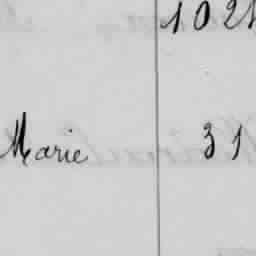 1021
Marie 31